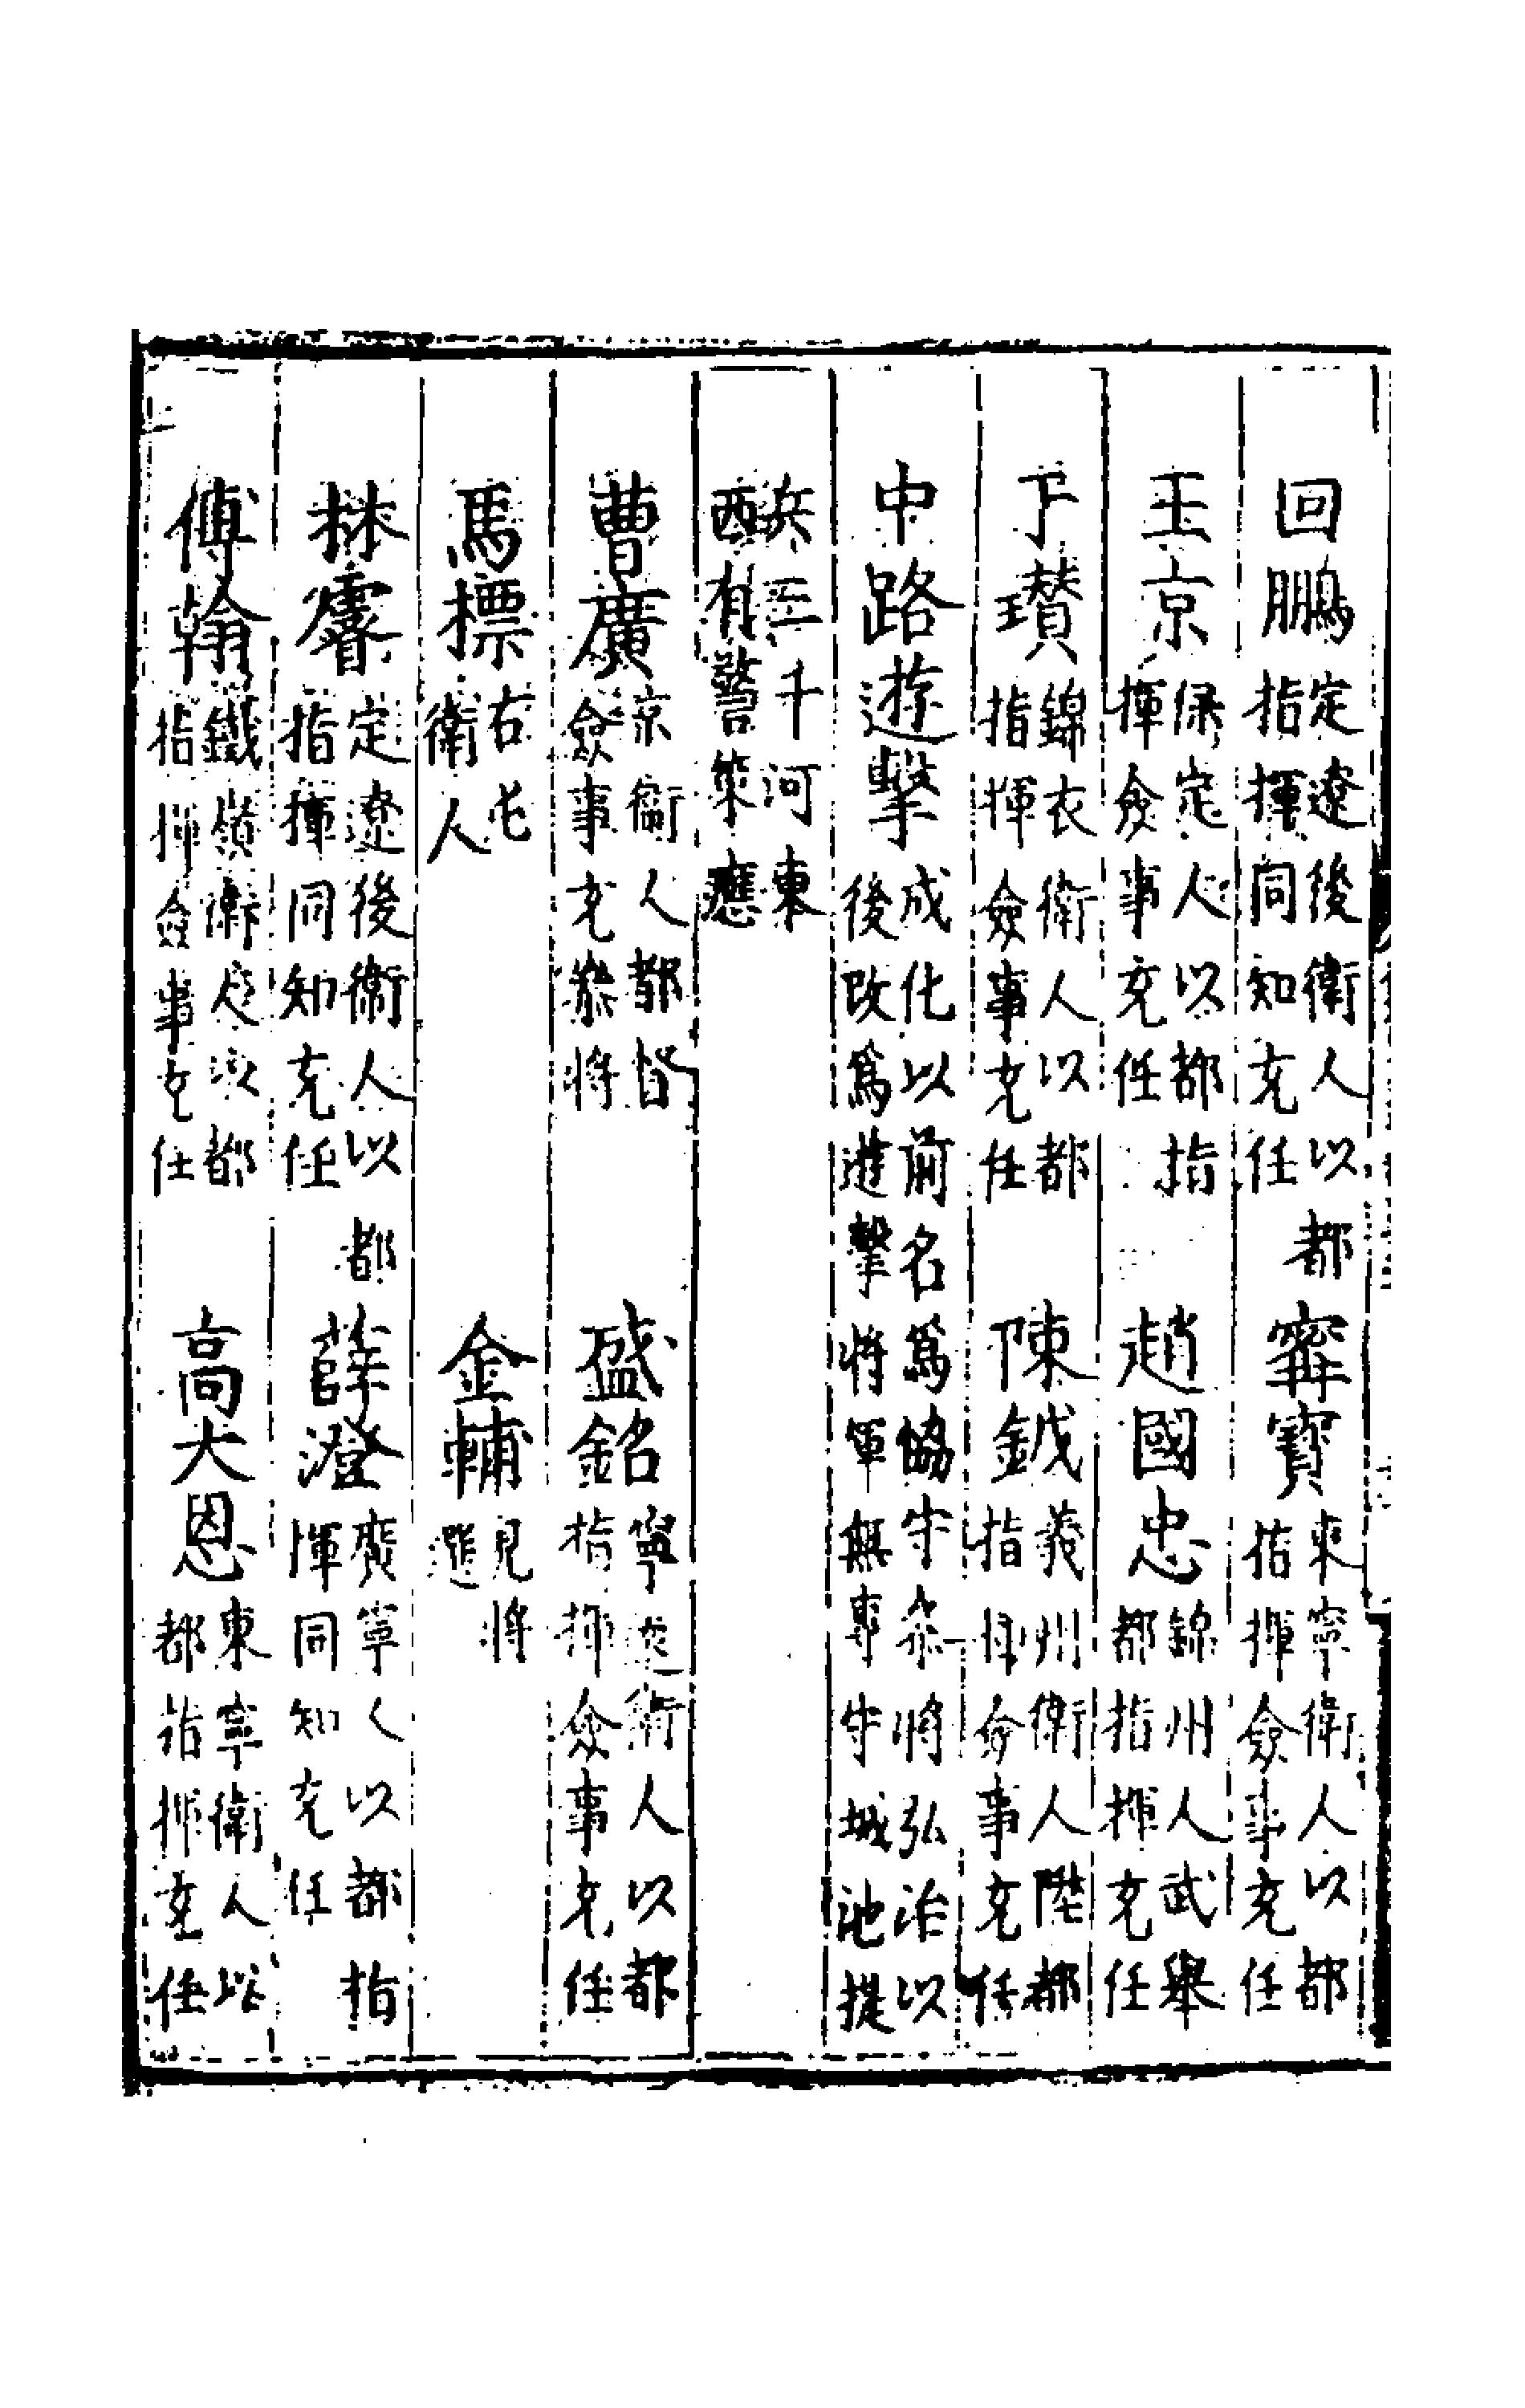 回鵬定遼後衛人以都指揮同知充任 寗寳東寧衛人以都指揮僉事充任
王京保定人以都指揮僉事充任 趙國忠錦州人武舉都指揮充任
于瓚錦衣衛人以都指揮僉事充任 陳鉞義州衛人陞都指揮僉事充任
中路遊擊成化以前名爲協守叅將弘治以後改爲遊擊將軍無專守城池提
兵三千河東西有警策應
曹廣京衛人都督僉事充叅將 盛銘寧遠衛人以都指揮僉事充任
馬標右屯衛人 金輔見將選
林睿定遼後衛人以都指揮同知充任 薛澄廣寧人以都指揮同知充任
傅翰鐵嶺衛人以都指揮僉事充任 高大恩東寧衛人以都指揮充任